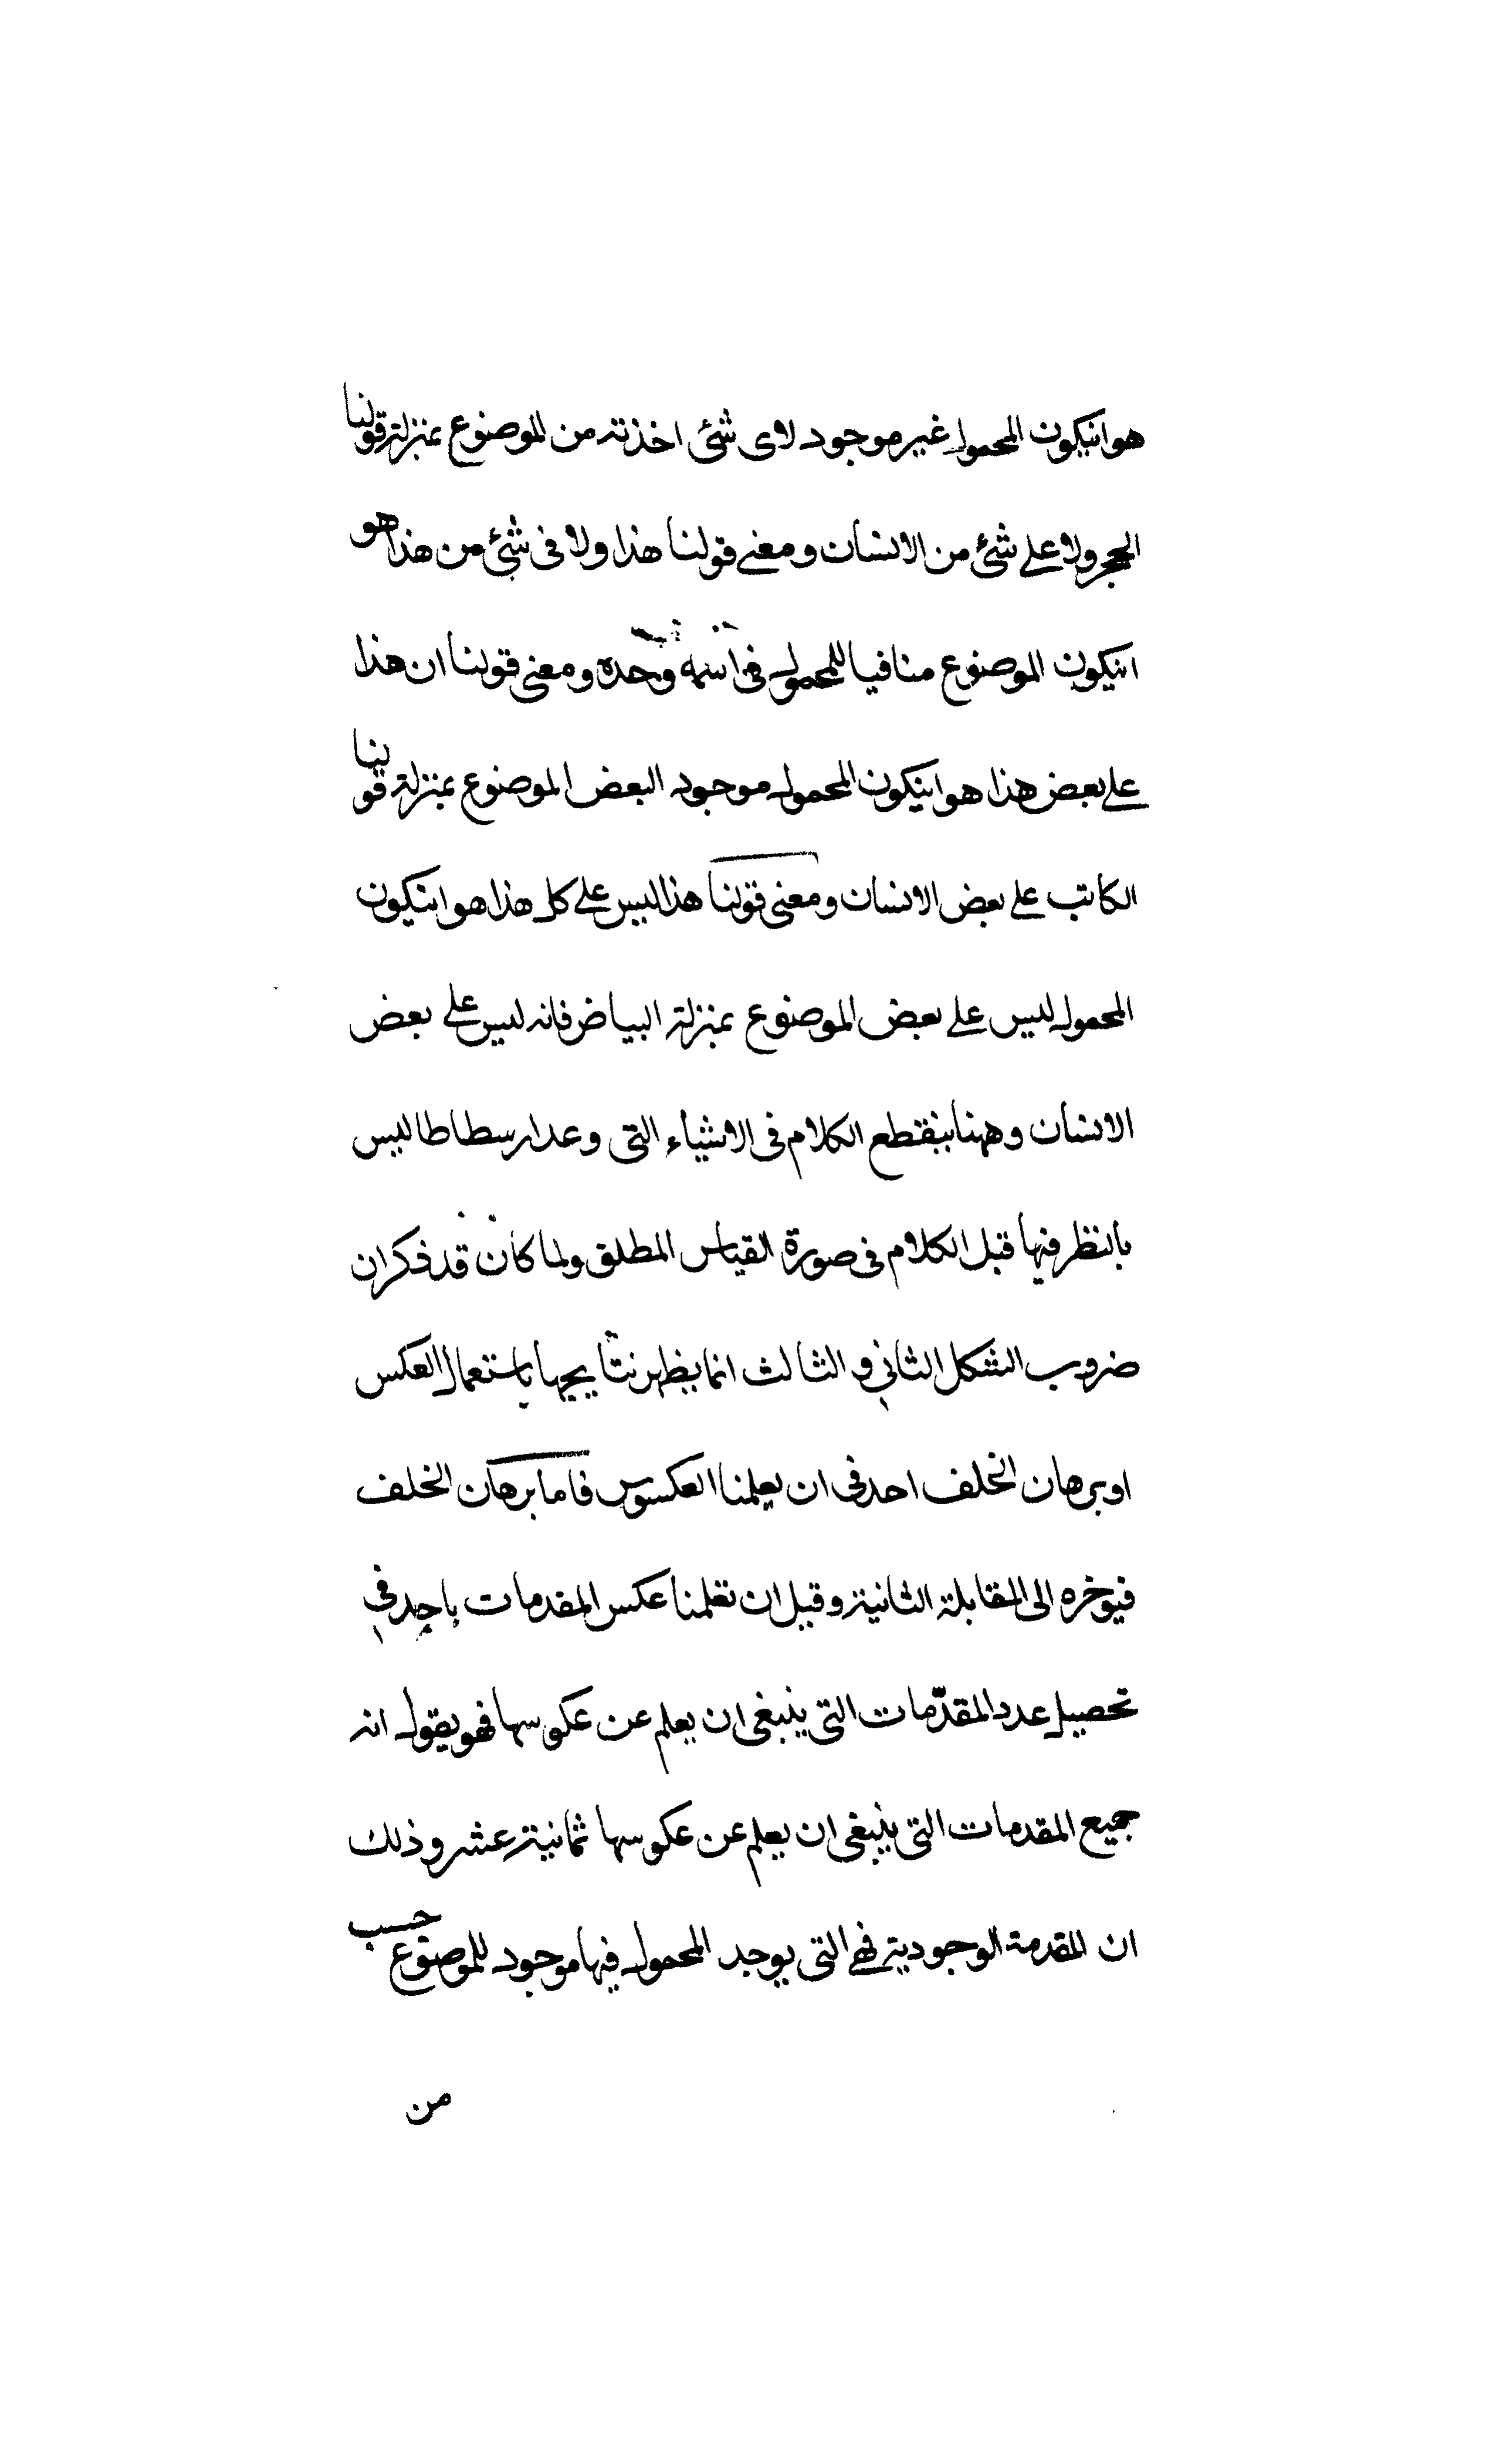 هو انيكون المحمول غير موجود لاى شئ اخذته من الموضوع بمنزلة قولنا
الحجر ولا على شئ من الانسان ومعنى قولنا هذا ولا فى شئ من هذا هو
انيكون الموضوع منافيا للمحمول فى اسمه وحده ومعنى قولنا ان هذا
على بعض هذا هو انيكون المحمول موجود البعض الموضوع بمنزلة قولنا
الكاتب على بعض الانسان ومعنى قولنا هذا ليس على كل هذا هو انيكون
المحمول ليس على بعض الموضوع بمنزلة البياض فانه ليس على بعض
الانسان وههنا ينقطع الكلام فى الاشياء التى وعد ارسطاطاليس
بالنظر فيها قبل الكلام فى صورة القياس المطلق ولما كان قد ذكر ان
ضروب الشكل الثانى و الثالث انما يظهر نتايجها باستعمال العكس
او برهان الخلف احد فى ان يعلمنا العكوس فاما برهان الخلف
فيوخره الى المقابلة الثانية وقبل ان تعلمنا عكس المقدمات ياخد فى
تحصيل عدد المقدّمات التى ينبغى ان يعلم عن عكوسها فهو يقول انه
جميع المقدمات التى ينبغى ان يعلم عن عكوسها ثمانية عشر وذلك
ان المقدمة الوجودية فهى التى يوجد المحمول فيها موجود للموضوع حسب
من